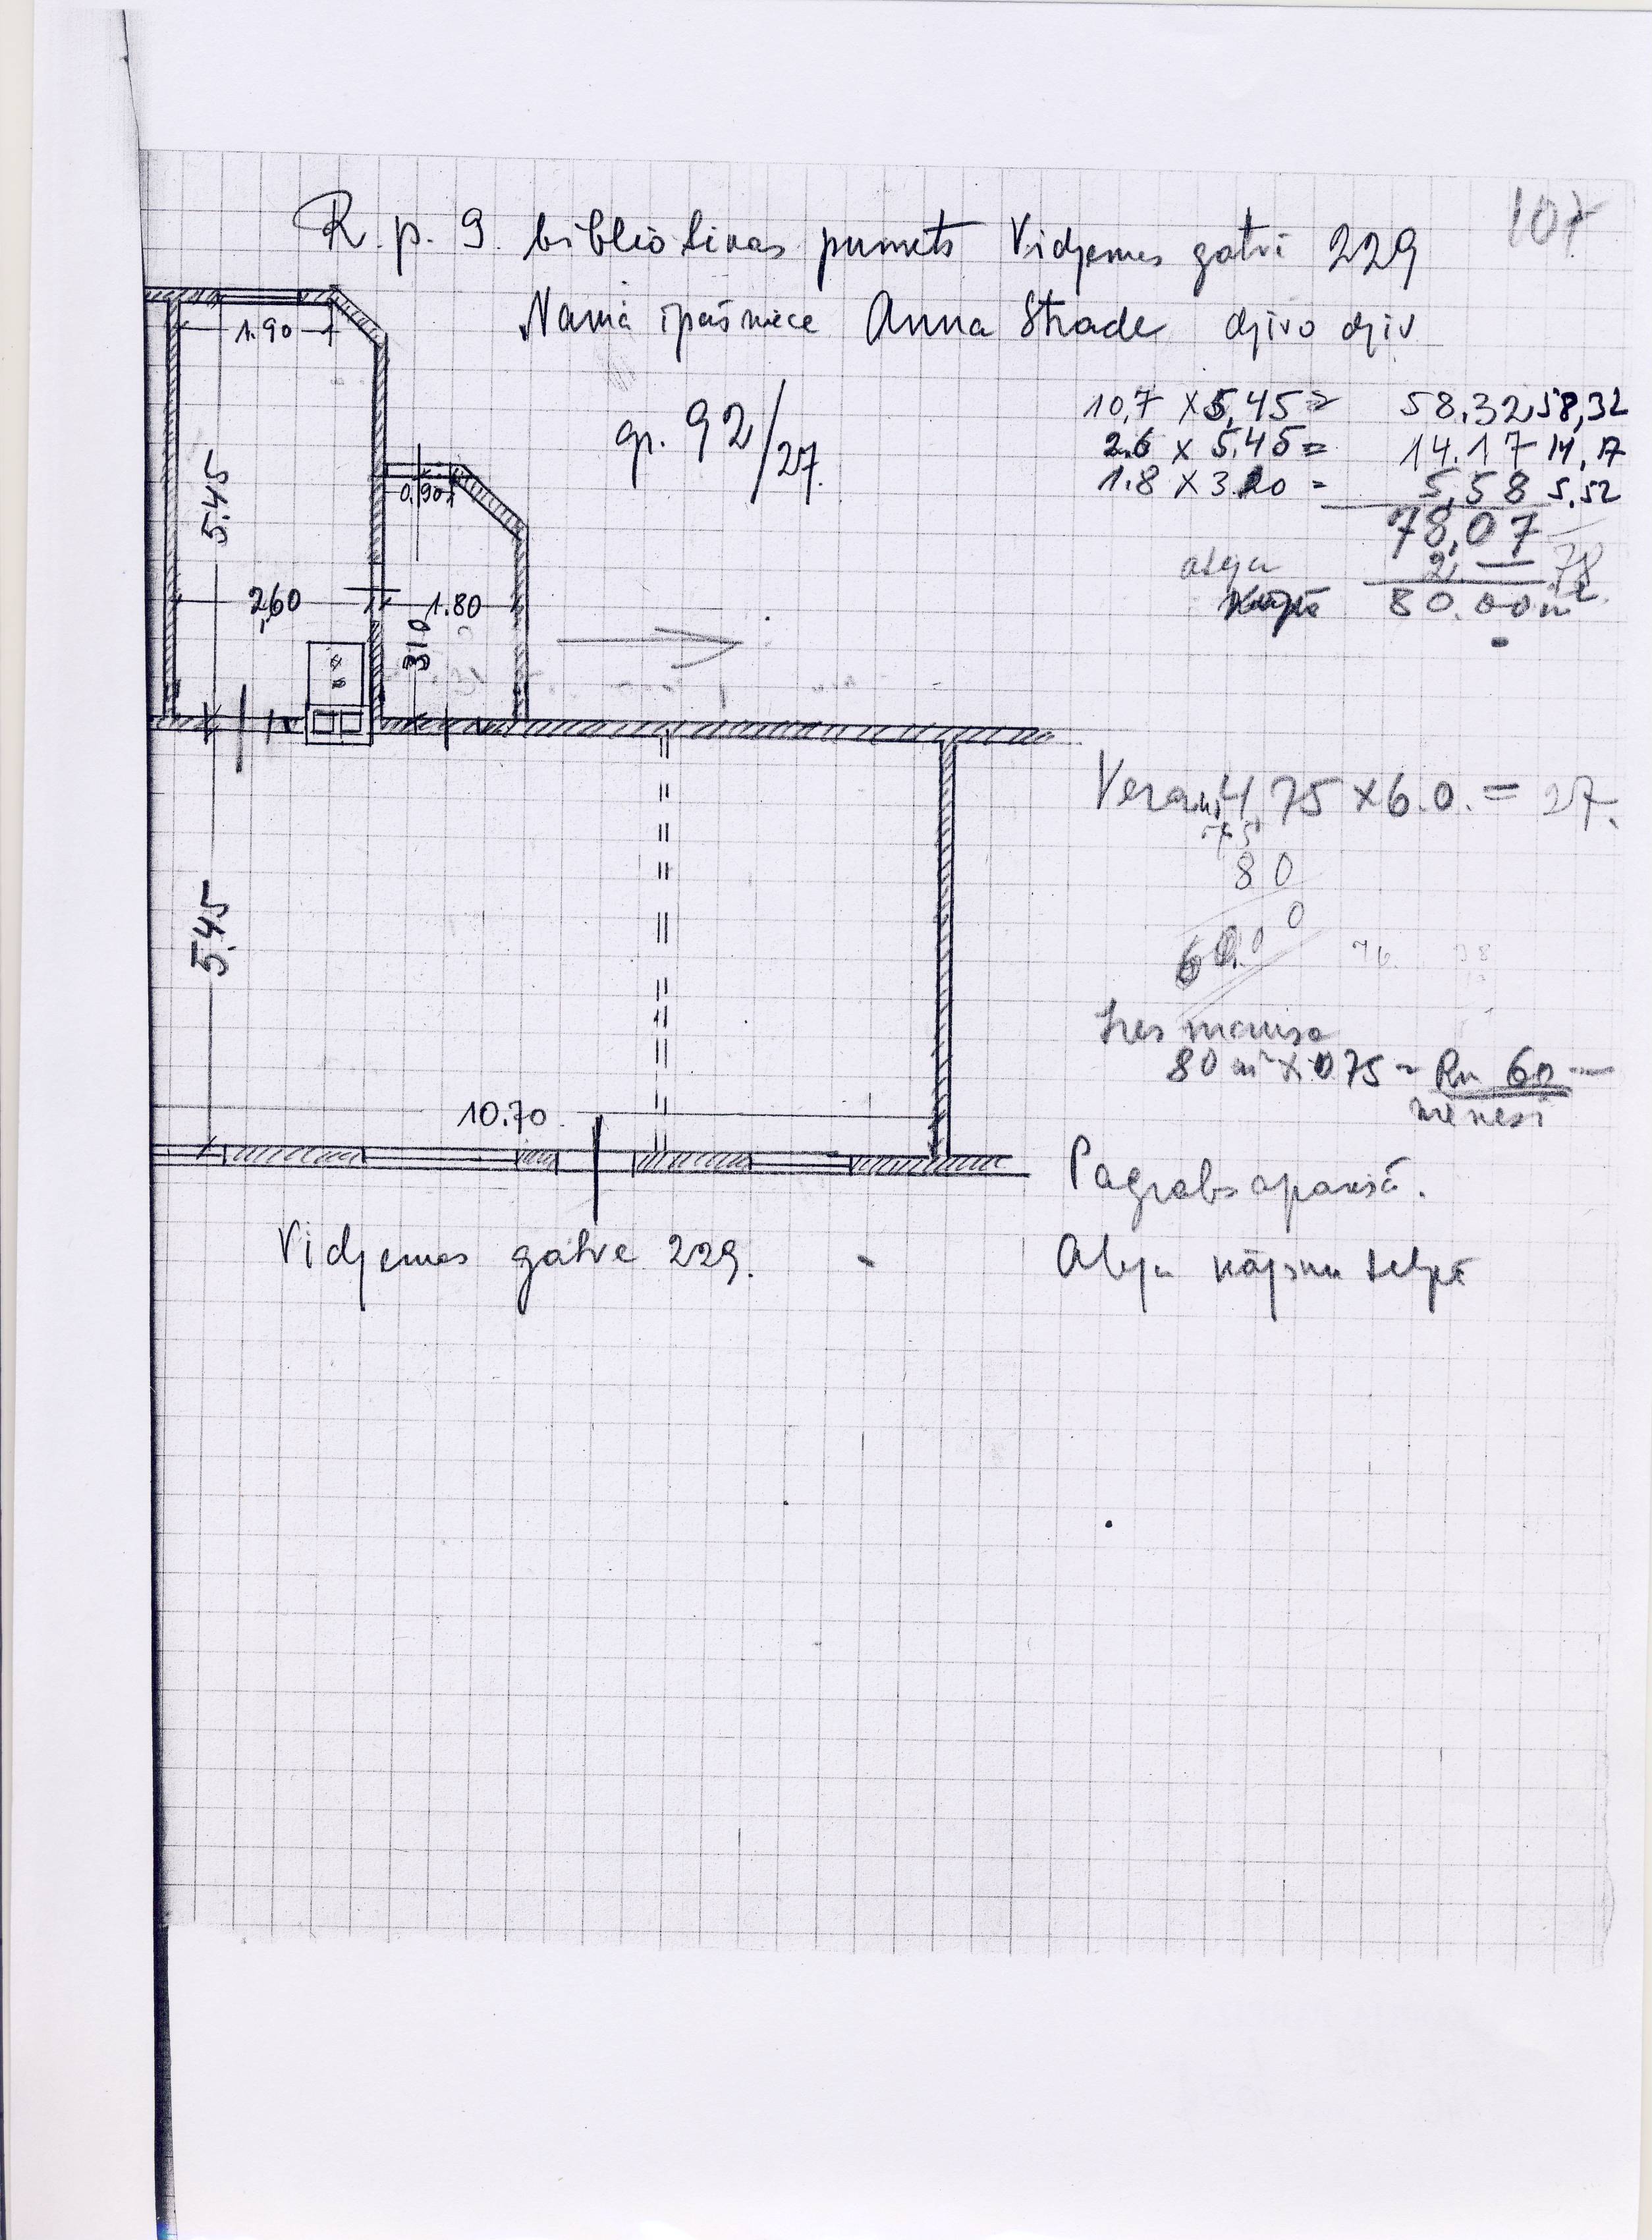 107
R. p. 9. bibliotekas punkts Vidzemes gatvē 229
Nama īpašniece Anna Strade dzīvo dzīv
1.90
10,7 x 5,45 = 58.32 58,32
gr. 92/27.
2.6 x 5.45 = 14.17 14,17
0.90
1.8 x 3.10 = 5,58 5.52
5.45
78,07
ateja 2,— 78
Kopā 80.00 m²
2,60
1.80
3.10
Veran. 4,75 x 6.0. = 27.
80
0
60.
5.45
Īres maksa
80 m² x 0.75 = Rm 60 —
mēnesī
10.70
Pagrabs apakšā.
Vidzemes gatve 229.
Ateja kāpņu telpā